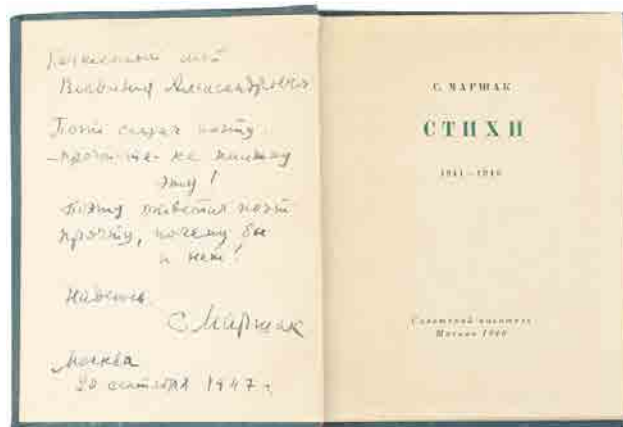 Владимир Александрович
Поэт сказал поэту
-прочтите-ка книжку
эту!
Поэту ответил поэт
прочту, почему бы
и нет!
Надеюсь
С Маршак
Москва
20 сентября 1947 г.
С. МАРШАК
СТИХИ
1941—1946
Советский писатель
Москва 1946